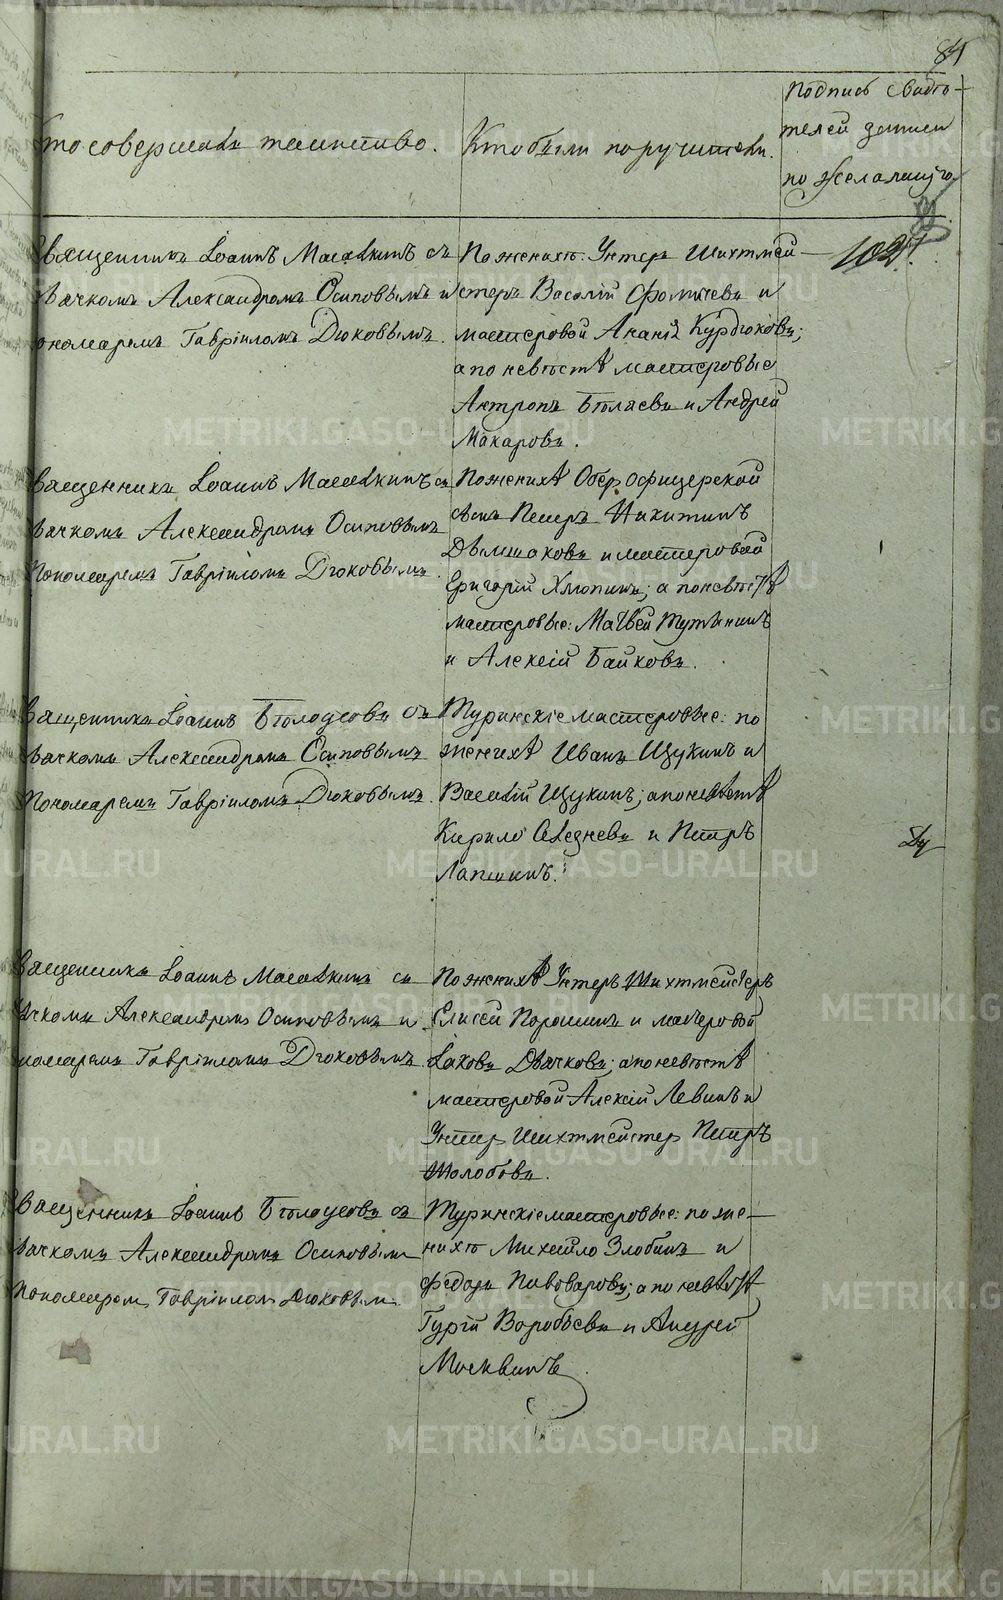 84
Кто совершалъ таинство.
Кто были поручители.
Подпись свидѣ-
телей записи
по желанию
102
Священникъ Іоаннъ Масалкинъ съ
Дьячкомъ Александромъ Осиповымъ и
Пономаремъ Гавріиломъ Дюковымъ.
По женихѣ Унтеръ Шихтмей-
стеръ Василій Фомичевъ и
мастеровой Ананій Курдюковъ;
а по невѣстѣ мастеровые
Антропъ Бѣляевъ и Андрей
Макаровъ.
Священникъ Іоаннъ Масалкинъ съ
Дьячкомъ Александромъ Осиповымъ
Пономаремъ Гавріиломъ Дюковымъ.
По женихѣ Оберъ офицерской
сынъ Петръ Никитинъ
и мастеровой
Григорій Хлопинъ; а по невѣстѣ
мастеровые: Матвей
и Алексій Байковъ.
Священникъ Іоаннъ Бѣлоусовъ съ
Дьячкомъ Александромъ Осиповымъ
Пономаремъ Гавріиломъ Дюковымъ.
Туринскіе мастеровые: по
женихѣ Иванъ Щукинъ и
Василій Щукинъ; а по невѣстѣ
Кирило Селезневъ и Петръ
Лапшинъ.
Священникъ Іоаннъ Масалкинъ съ
Дьячкомъ Александромъ Осиповымъ и
Пономаремъ Гавріиломъ Дюковымъ.
По женихѣ Унтеръ Шихтмейстеръ
Елисей Порошинъ и мастеровой
Іаковъ Дьячковъ; а по невѣстѣ
мастеровой Алексій Левинъ и
Унтер Шихтмейстер Петръ
Шолобовъ.
Священникъ Іоаннъ Бѣлоусовъ съ
Дьячкомъ Александромъ Осиповымъ
Пономаремъ Гавріиломъ Дюковымъ.
Туринскіе мастеровые: по же-
нихѣ Михайло Злобинъ и
Федоръ Пивоваровъ; а по невѣстѣ
Гурій Воробьевъ и Андрей
Москвинъ.
METRIKI.GASO-URAL.RU